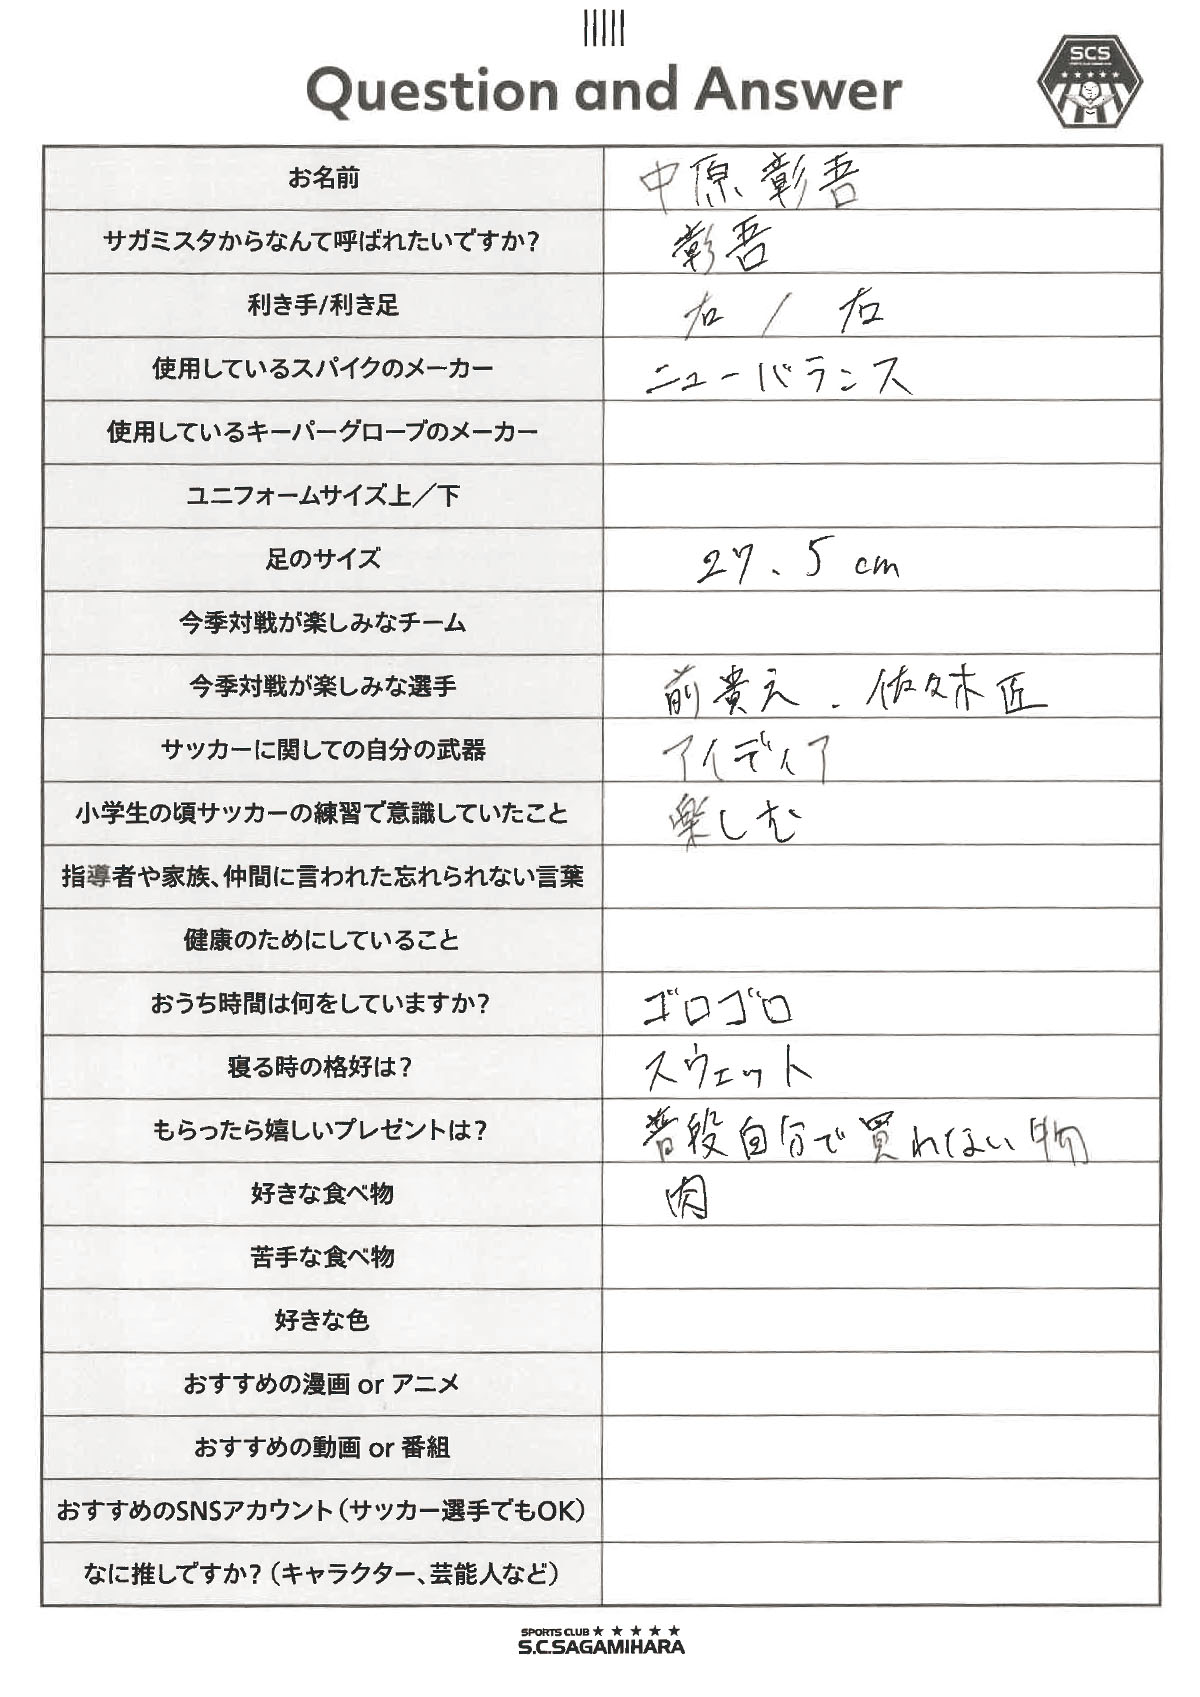 Question and Answer
SCS
お名前 中原彰吾
サガミスタからなんて呼ばれたいですか? 彰吾
利き手/利き足 右 / 右
使用しているスパイクのメーカー ニューバランス
使用しているキーパーグローブのメーカー
ユニフォームサイズ上／下
足のサイズ 27.5 cm
今季対戦が楽しみなチーム
今季対戦が楽しみな選手 前貴之. 佐々木匠
サッカーに関しての自分の武器 アイディア
小学生の頃サッカーの練習で意識していたこと 楽しむ
指導者や家族、仲間に言われた忘れられない言葉
健康のためにしていること
おうち時間は何をしていますか? ゴロゴロ
寝る時の格好は? スウェット
もらったら嬉しいプレゼントは? 普段自分で買れない物
好きな食べ物 肉
苦手な食べ物
好きな色
おすすめの漫画 or アニメ
おすすめの動画 or 番組
おすすめのSNSアカウント（サッカー選手でもOK）
なに推しですか?（キャラクター、芸能人など）
SPORTS CLUB ★ ★ ★ ★ ★
S.C.SAGAMIHARA